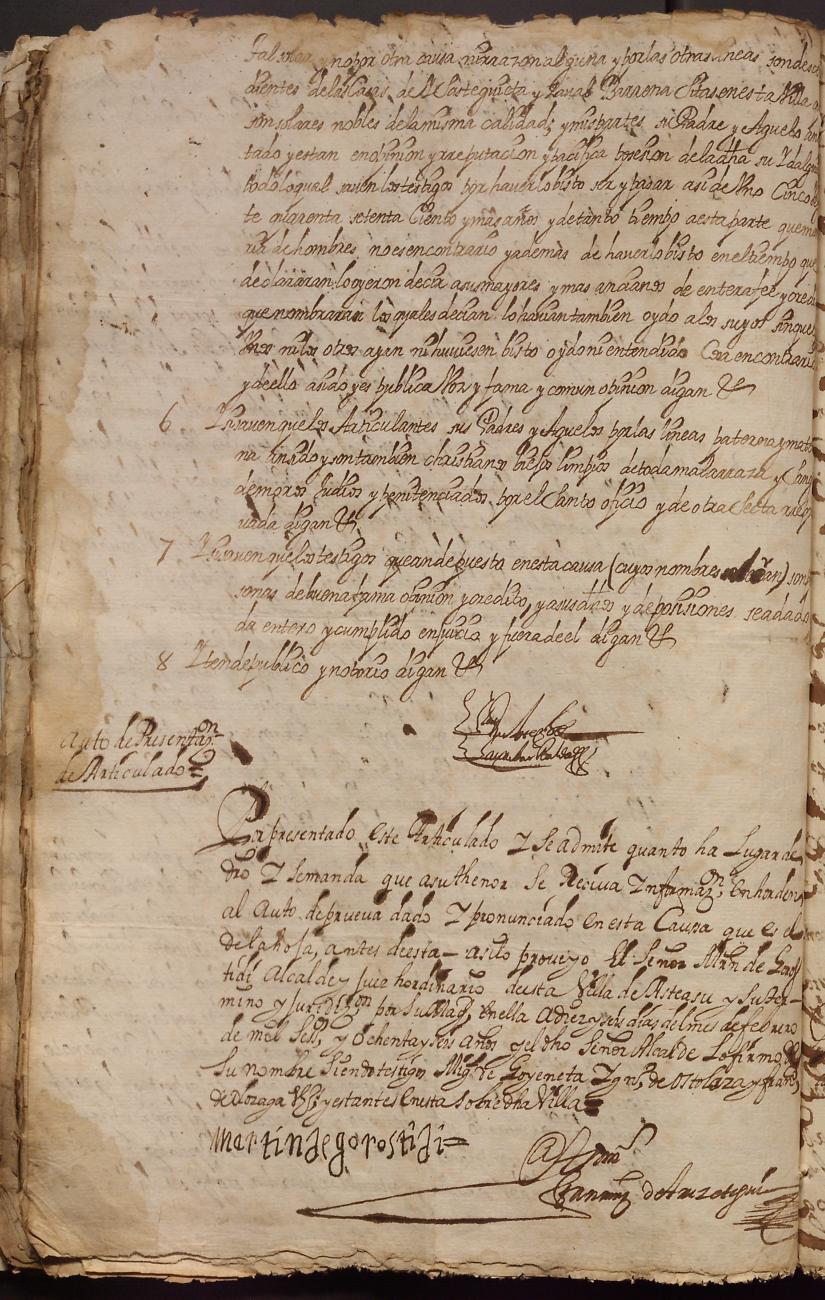 tal solar y no por otra causa ni rrazon alguna y por las otras lineas son desen
dientes de las Casas de y Barrena sitas en esta Villa
son solares nobles de la misma calidad; y mis partes su Padre y Aguelo an
tado y estan en opinion y rreputacion y pacifica posesion de la dha su Ydalg
todo lo qual saven los testigos por haverlo bisto ser y pasar asi de Uno Cinco
te quarenta setenta Ciento y mas años y de tanto tiempo a esta parte que me
ria de hombres no es en contrario y ademas de haverlo bisto en el tiempo que
declararan lo oyeron decir a sus mayores y mas ancianos de entera fee y credi
que nombraran los quales decian lo havian tambien oydo a los suyos sin que
Unos ni los otros ayan ni huviesen bisto oydo ni entendido Cosa en contrario
y de ello a sido y es publica Voz y fama y comun opinion digan &
6 Yten saven que los Articulantes sus Padres y Aguelos por las lineas paterna y mater
na an sido y son tambien christianos biejos limpios de toda mala rraza y
de moros Judios y penitenciados por el Santo oficio y de otra secta rrepr
vada digan &
7 Yten saven que los testigos que an depuesto en esta causa (cuyos nombres ) son
sonas de buena fama opinion y credito, y a sus dhos y deposisiones se a dado
da entero y cumplido en juicio y fuera de el digan &
8 Yten de publico y notorio digan &
Auto de Presentaon
de Articulado
Por presentado este Articulado Y se admite quanto ha Lugar de
dro Y se manda que a su thenor se Reciva Ynformaon, en horden
al Auto de prueva dado Y pronunciado en esta Causa que es el
de la hoja, antes de esta - asi lo proveyo El Señor Mrn de Goros
tidi Alcalde y Juez hordinario de esta Villa de Asteasu y su ter-
mino y juridizon por su Magd, en ella a diez y seis dias del mes de febrero
de mil Seisos y Ochenta y seis años y el dho Señor Alcalde lo firmo de
Su nombre siendo testigos Migl de Goyeneta Ygno de Ostolaza y Frano
de Lizaga Vzos y estantes en esta sobredha Villa
Martin de gorostidi
Ante mi